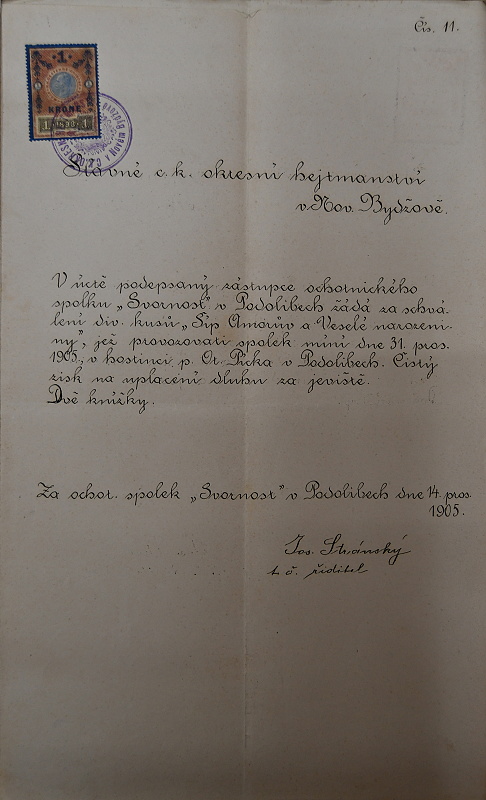 Čís. 11.
1
KRONE
1 1898 1
Slavné c. k. okresní hejtmanství
v Nov. Bydžově.
V úctě podepsaný zástupce ochotnického
spolku „Svornost" v Podolibech žádá za schvá-
lení div. kusů „Šíp Amorův a Veselé narozeni-
ny", jež provozovati spolek míní dne 31. pros.
1905, v hostinci p. Ot. Picka v Podolibech. Čistý
zisk na uplacení dluhu za jeviště.
Dvě knížky.
Za ochot. spolek „Svornost" v Podolibech dne 14. pros.
1905.
Jos. Stránský
t. č. řiditel